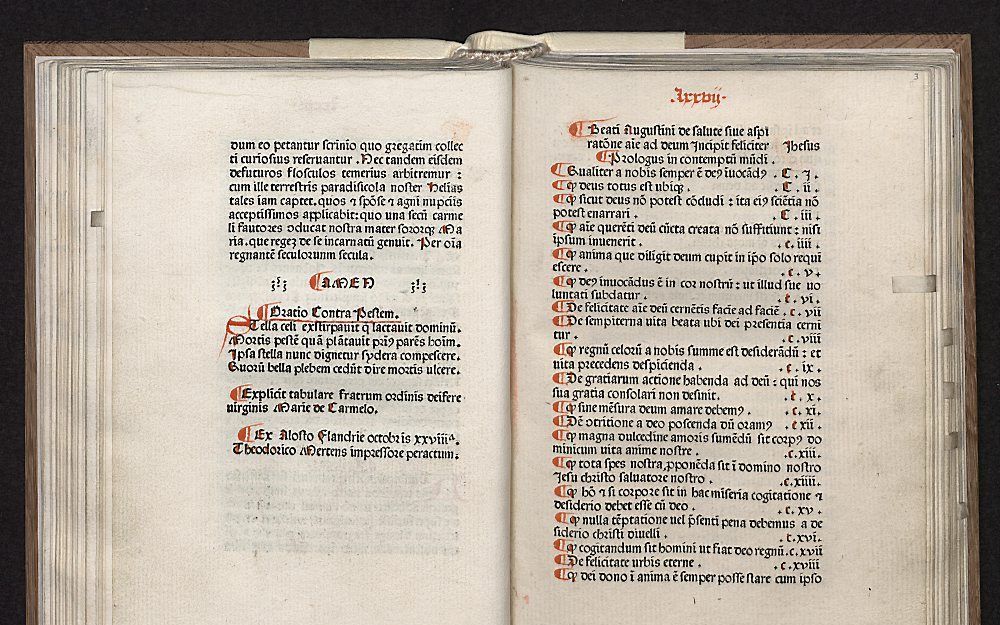 dum eo petantur scrinio quo gregatim collec
ti curiosius reseruantur. Nec tandem eisdem
defuturos flosculos temerius arbitremur :
cum ille terrestris paradisicola noster Helias
tales iam captet. quos ⁊ spōse ⁊ agni nupciis
acceptissimos applicabit: quo una secū carme
li fautores ꝯducat nostra mater sororqꝫ Ma
ria. que regeꝫ de se incarnatū genuit. Per oīa
regnantē seculorunm secula.
AMEN
Oratio Contra Pestem.
Stella celi exstirpauit q̄ lactauit dominū.
Mortis pestē quā plātauit prīꝰ parēs hoīm.
Ipsa stella nunc dignetur sydera compescere.
Quorū bella plebem cedūt dire mortis ulcere.
Explicit tabulare fratrum ordinis deifere
uirginis Marie de Carmelo.
Ex Alosto Flandrie octobris xxviiiª.
Theodorico Mertens impressore peractum:
3
Lxxvij.
Beati Augustini de salute siue aspi
ratōne aīe ad deum Incipit feliciter Jhesus
Prologus in contemptū mūdi .
Qualiter a nobis semper ē deꝰ īuocādꝰ . C . j .
Qꝙ deus totus est ubiqꝫ . . C . ii .
Qꝙ sicut deus nō potest cōdudi : ita eiꝰ sciētia nō
potest enarrari . . C . iii .
Qꝙ aīe querēti deū cūcta creata nō suffitiunt : nisi
ipsum inuenerit . . c. iiii .
Qꝙ anima que diligit deum cupit in īpo solo requi
escere . . c . v .
Qꝙ deꝰ inuocādus ē in cor nostrū : ut illud sue uo
luntati subdatur . . c . vi .
De felicitate aīe deū cernētis facīe ad faciē . c . vii
De sempiterna uita beata ubi dei presentia cerni
tur . . c . viii
Qꝙ regnū celorū a nobis summe est desiderādū : et
uita precedens despicienda . . c . ix .
De gratiarum actione habenda ad deū : qui nos
sua gratia consolari non desinit. . c . x .
Qꝙ sine mēsura deum amare debemꝰ . . c . xi.
Dē ꝯtritione a deo poscenda dū oramꝰ . . c xii .
Qꝙ magna dulcedine amoris sumēdū sit corpꝰ do
minicum uita anime nostre . . c. xiii.
Qꝙ tota spes nostra, ꝓponēda sit ī domino nostro
Jesu christo saluatore nostro . . c. xiiii.
Qꝙ hō ⁊ si corpore sit in hac miseria cogitatione ⁊
desiderio debet esse cū deo . . c . xv .
Qꝙ nulla tēptatione uel p̄senti pena debemus a de
siderio christi diuelli . . c. xvi.
Qꝙ cogitandum sit homini ut fiat deo regnū .c. xvii
De felicitate urbis eterne . . c . xviii
Qꝙ dei dono ī anima ē semper posse stare cum ipso